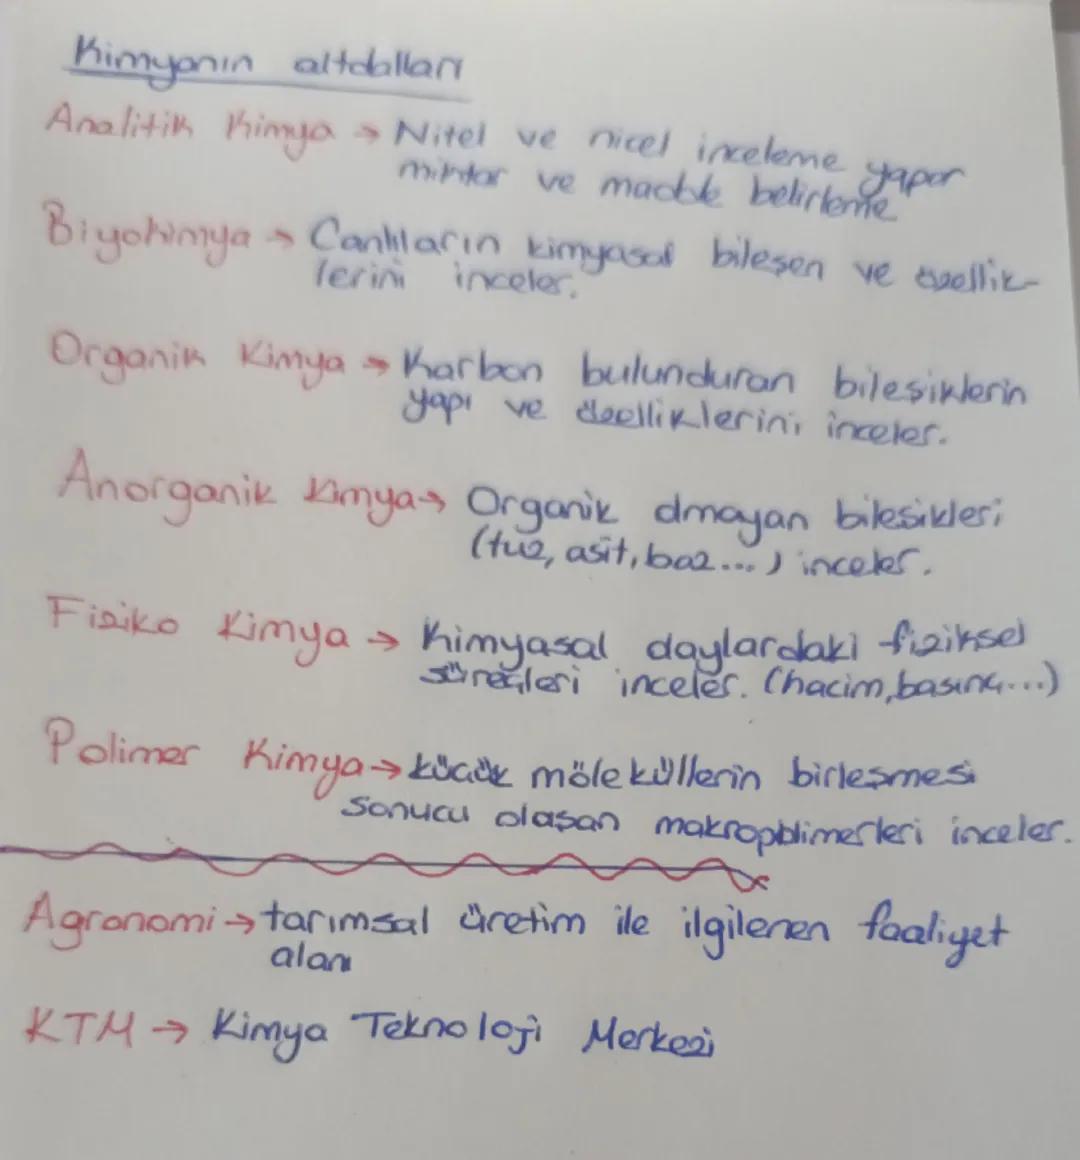 Kimyanın altdalları
Analitik Kimya → Nitel ve nicel inceleme yapar
miktar ve madde belirleme
Biyokimya → Canlıların kimyasal bileşen ve özellik-
lerini inceler.
Organik Kimya → Karbon bulunduran bileşiklerin
yapı ve özelliklerini inceler.
Anorganik Kimya → Organik olmayan bileşikleri
(tuz, asit, baz...) inceler.
Fiziko Kimya → Kimyasal olaylardaki fiziksel
süreçleri inceler. (hacim, basınç...)
Polimer Kimya → küçük möleküllerin birleşmesi
sonucu olaşan makropolimerleri inceler.
Agronomi → tarımsal üretim ile ilgilenen faaliyet
alanı
KTM → Kimya Teknoloji Merkezi